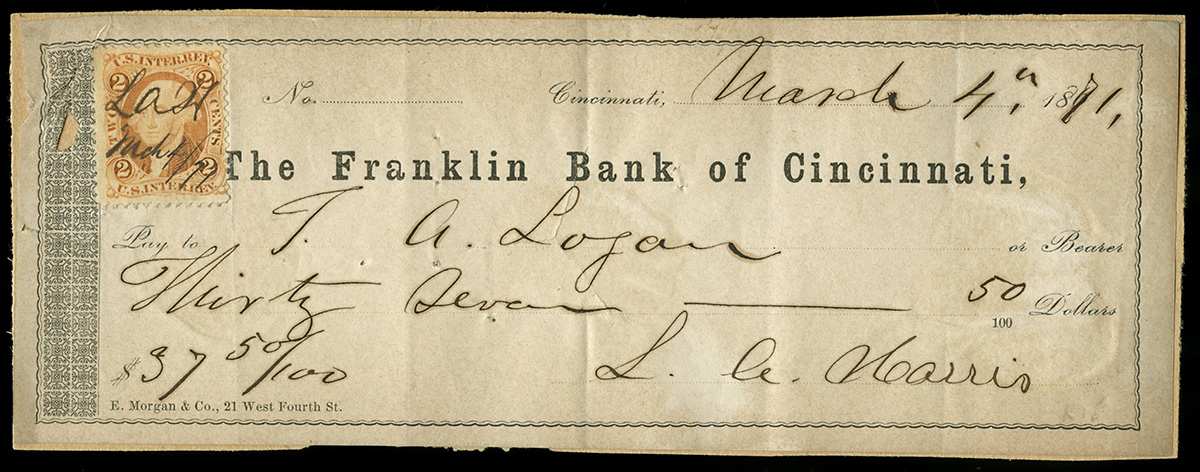 U.S. INTER. REV.
2 2
TWO CENTS
2 2
U.S. INTER. REV.
No. Cincinnati, March 4th 1871,
The Franklin Bank of Cincinnati,
Pay to T. A. Logan or Bearer
Thirty Seven 50/100 Dollars
$37 50/100 L. A. Harris
E. Morgan & Co., 21 West Fourth St.